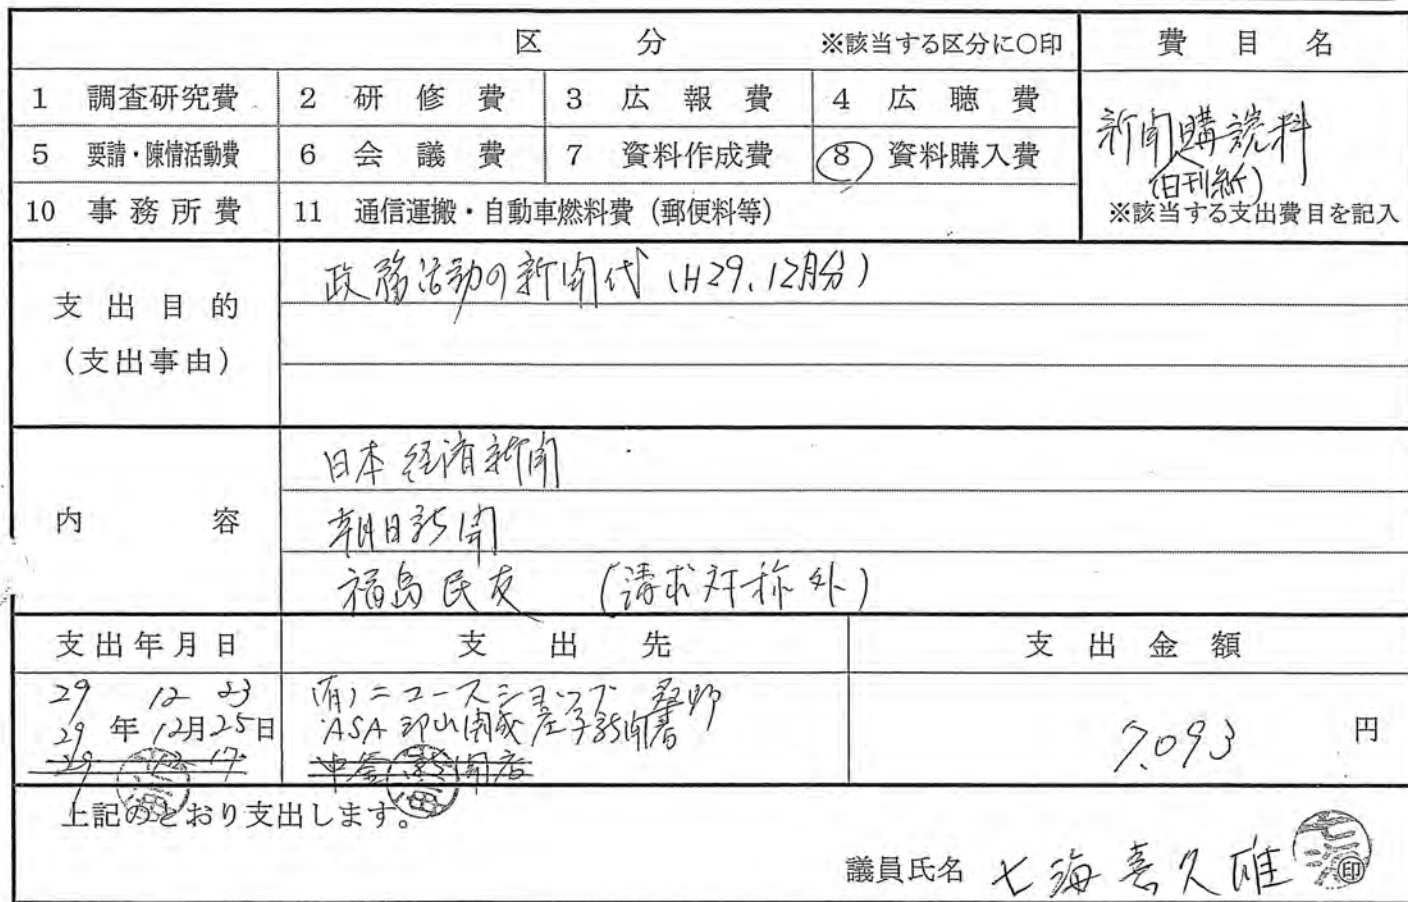 区 分 ※該当する区分に○印 費 目 名
1 調査研究費 2 研 修 費 3 広 報 費 4 広 聴 費
5 要請・陳情活動費 6 会 議 費 7 資料作成費 8 資料購入費
10 事 務 所 費 11 通信運搬・自動車燃料費 (郵便料等)
新聞購読料
(日刊紙)
※該当する支出費目を記入
支 出 目 的
(支出事由)
政務活動の新聞代 (H29.12月分)
内 容
日本経済新聞
朝日新聞
福島民友 (請求対称外)
支出年月日 支 出 先 支 出 金 額
29 12 23 (有)ニュースショップ
29 年 12月25日 ASA郡山開成
29 12 17 新聞店
7,093 円
上記のとおり支出します。
議員氏名 七海喜久雄 印